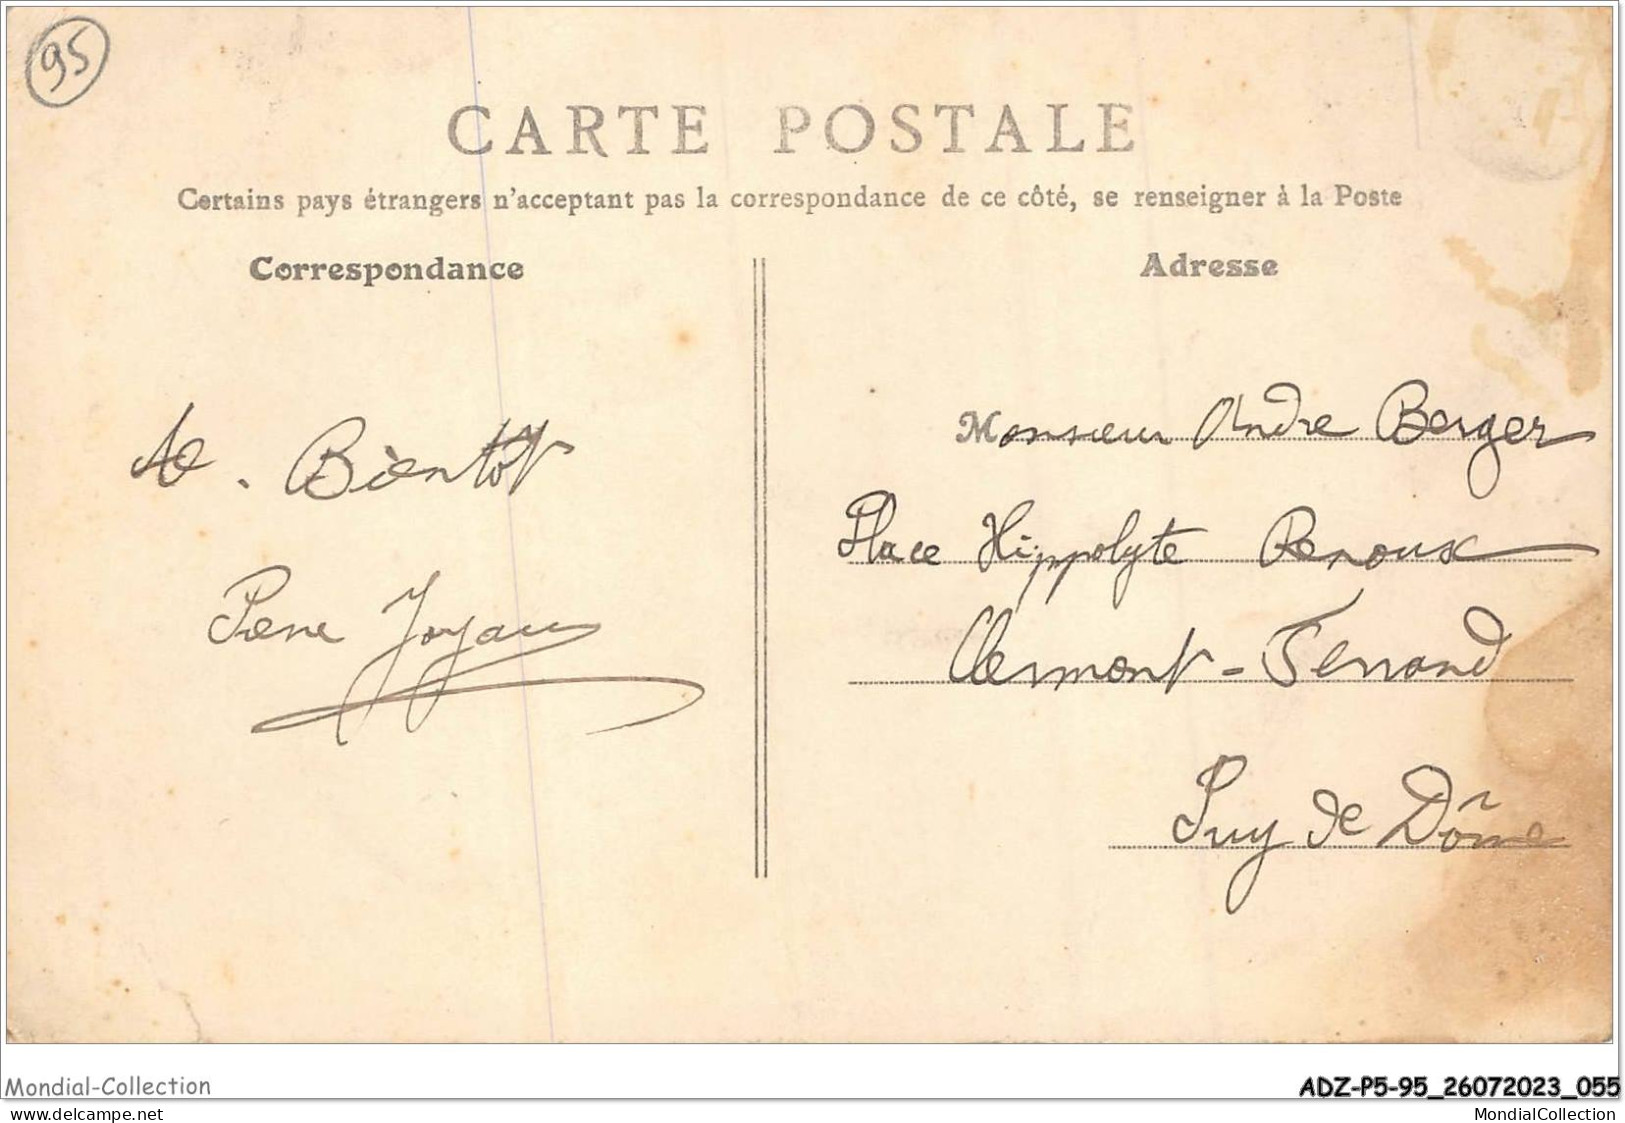 95
CARTE POSTALE
Certains pays étrangers n'acceptant pas la correspondance de ce côté, se renseigner à la Poste
Correspondance
Adresse
A. Bientôt
Monsieur Andre Berger
Place Hippolyte Renoux
Clermont-Ferrand
Puy de Dôme
Mondial-Collection
ADZ-P5-95_26072023_055
www.delcampe.net
MondialCollection